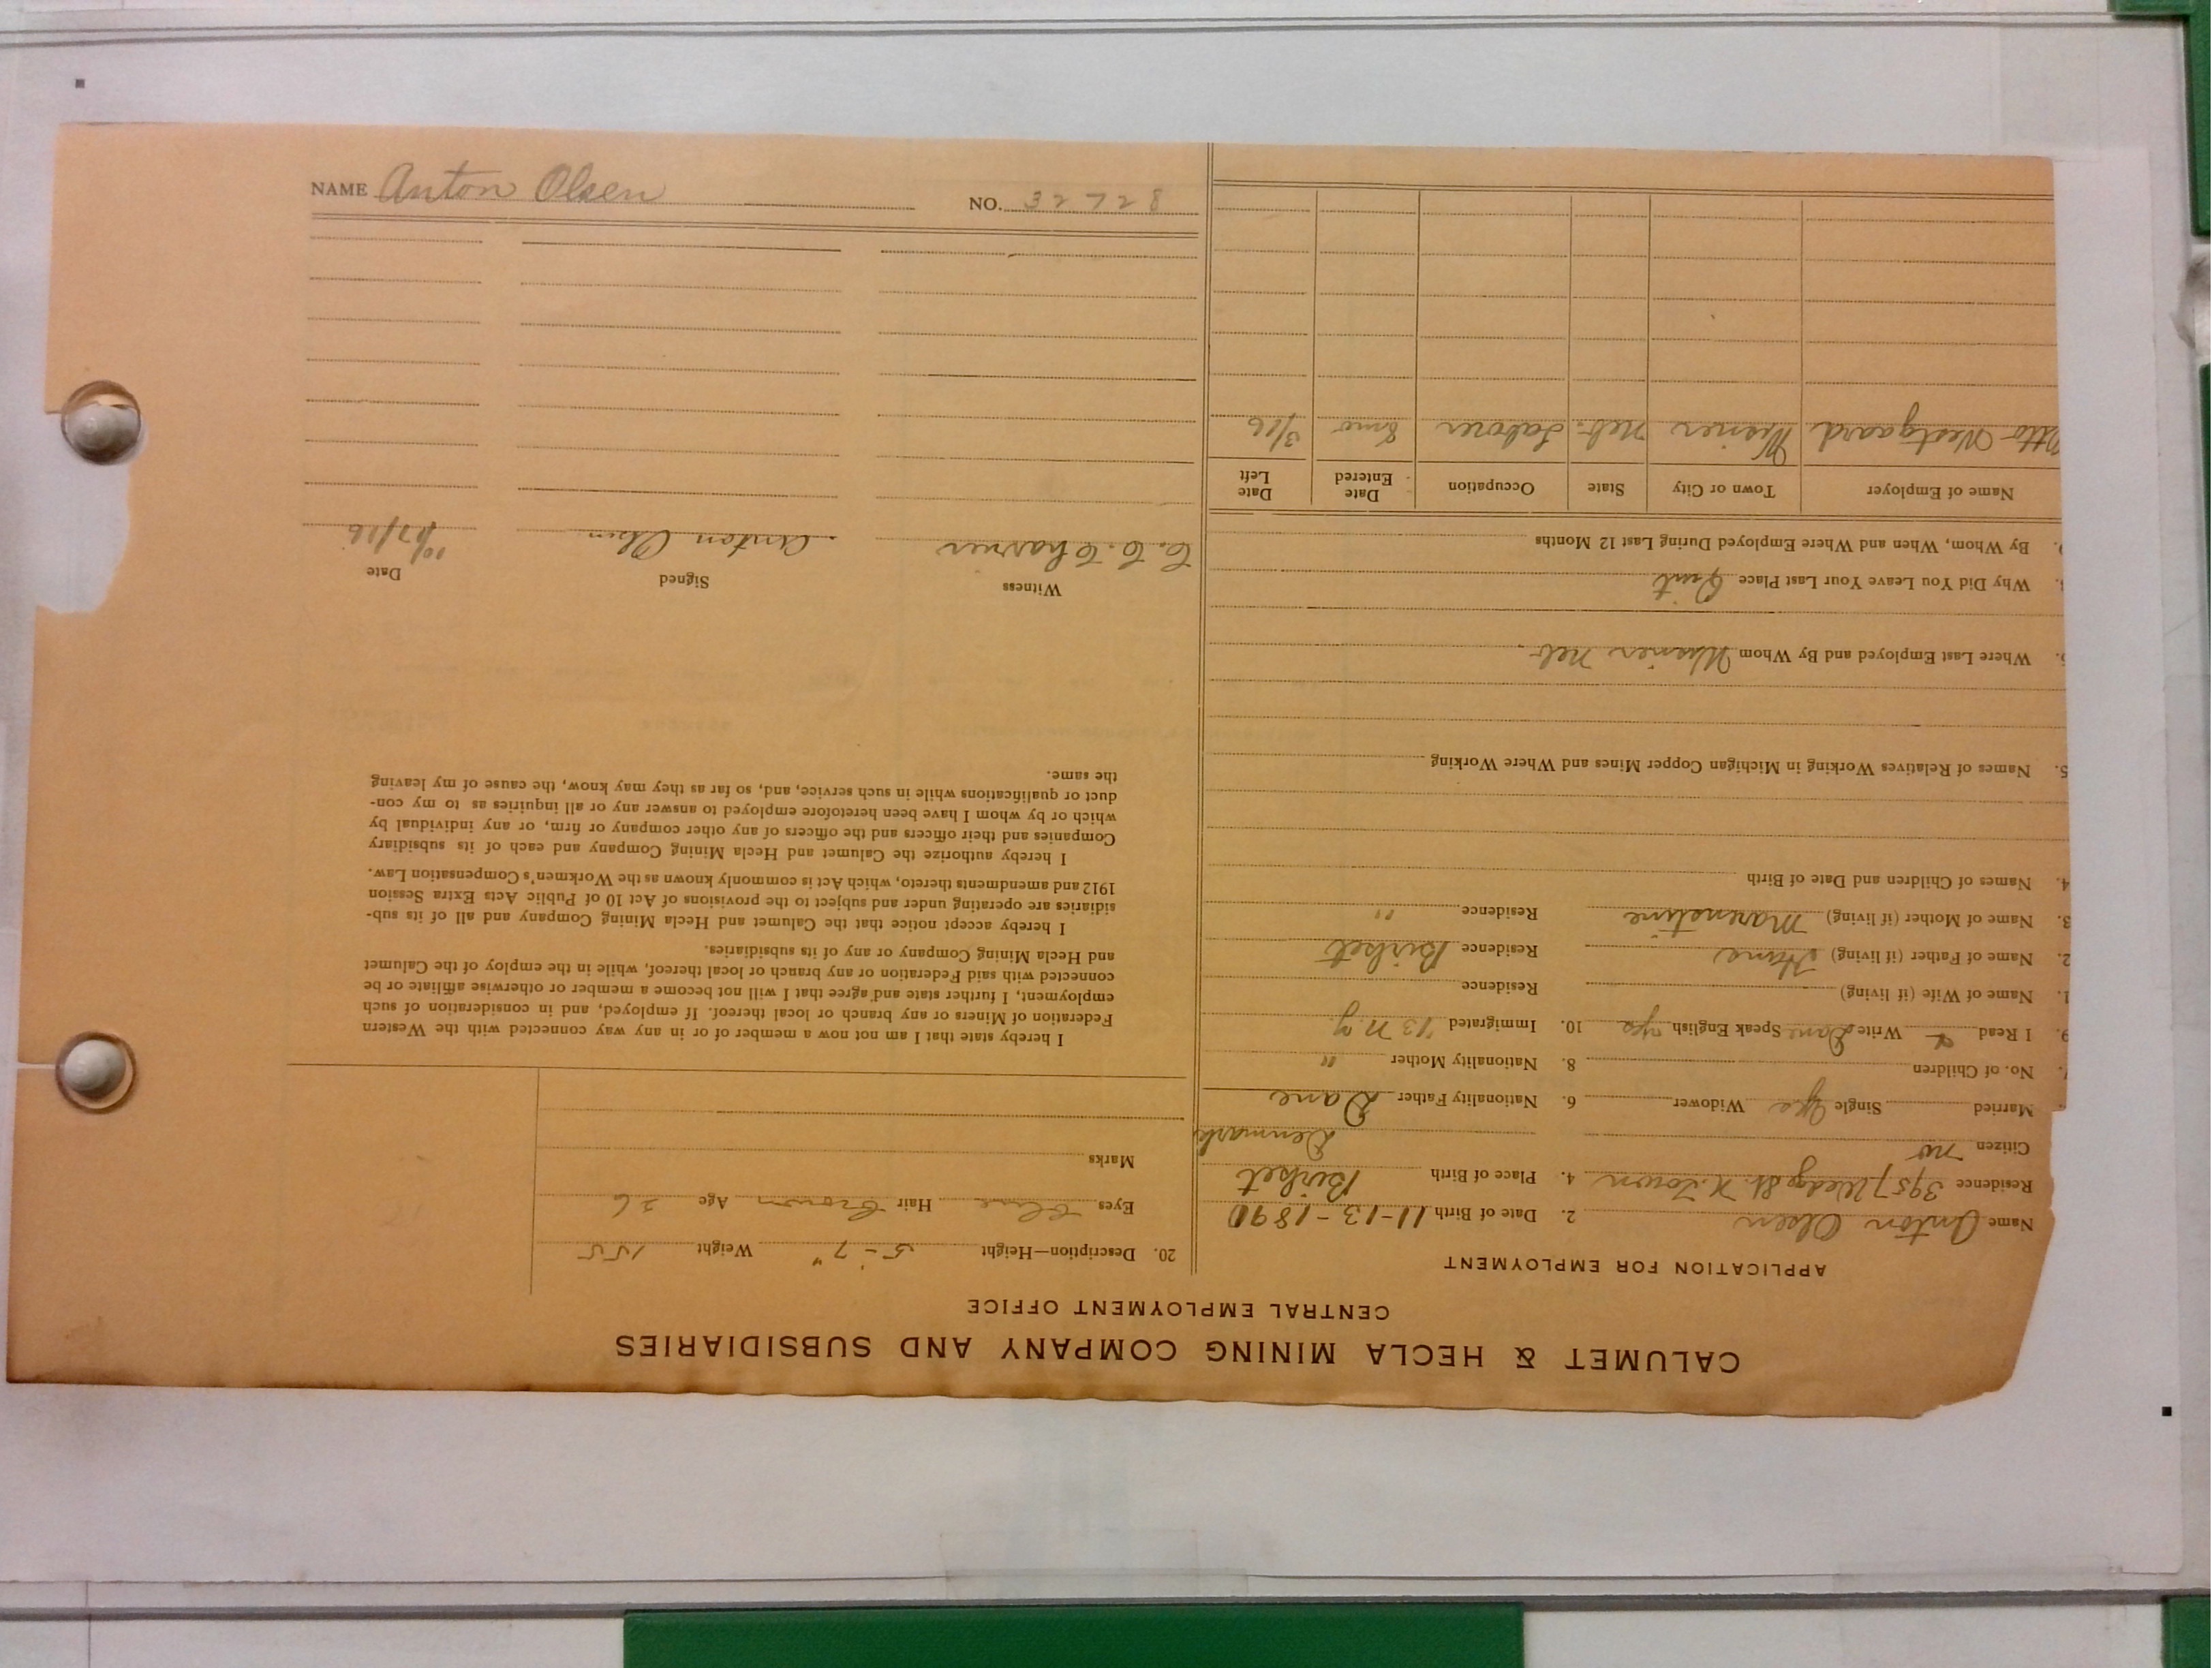 NAME Anton Olsen NO. 32728
CALUMET & HECLA MINING COMPANY AND SUBSIDIARIES
CENTRAL EMPLOYMENT OFFICE
APPLICATION FOR EMPLOYMENT
Name Anton Olsen 2. Date of Birth 11-13-1890
Residence 3957 St. 4. Place of Birth Birket
Citizen no Denmark
Married Single Yes Widower 6. Nationality Father Dane
No. of Children 8. Nationality Mother "
9. I Read & Write Dane Speak English yes 10. Immigrated '13 N.Y.
1. Name of Wife (if living) Residence
2. Name of Father (if living) Hans Residence Birket
3. Name of Mother (if living) Residence "
4. Names of Children and Date of Birth
5. Names of Relatives Working in Michigan Copper Mines and Where Working
Where Last Employed and By Whom Neb
Why Did You Leave Your Last Place Quit
By Whom, When and Where Employed During Last 12 Months
Name of Employer Town or City State Occupation Date Entered Date Left
Otto Westgaard Neb. Laborer 8 mo 3/16
20. Description—Height 5-7" Weight 155
Eyes Blue Hair Brown Age 26
Marks
I hereby state that I am not now a member of or in any way connected with the Western
Federation of Miners or any branch or local thereof. If employed, and in consideration of such
employment, I further state and agree that I will not become a member or otherwise affiliate or be
connected with said Federation or any branch or local thereof, while in the employ of the Calumet
and Hecla Mining Company or any of its subsidiaries.
I hereby accept notice that the Calumet and Hecla Mining Company and all of its sub-
sidiaries are operating under and subject to the provisions of Act 10 of Public Acts Extra Session
1912 and amendments thereto, which Act is commonly known as the Workmen's Compensation Law.
I hereby authorize the Calumet and Hecla Mining Company and each of its subsidiary
Companies and their officers and the officers of any other company or firm, or any individual by
which or by whom I have been heretofore employed to answer any or all inquiries as to my con-
duct or qualifications while in such service, and, so far as they may know, the cause of my leaving
the same.
Witness Signed Date
Anton Olsen 10/27/16